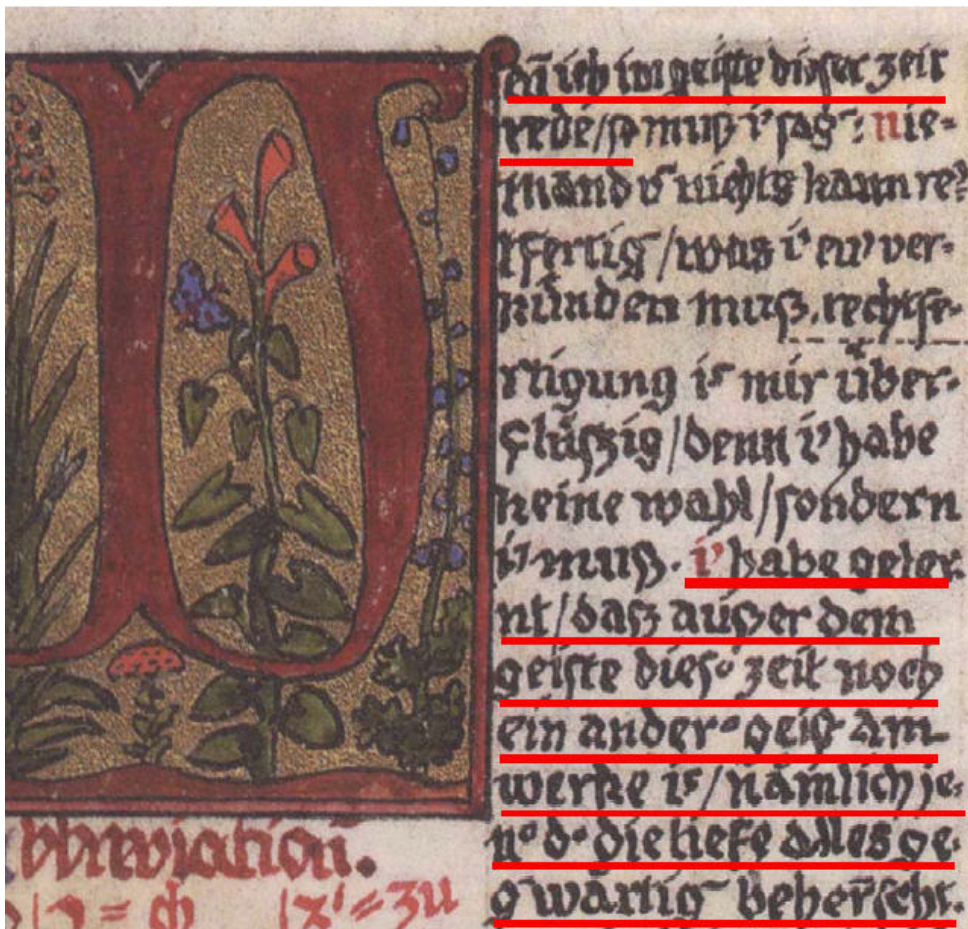 eñ ich im geiste dieser zeit
rede/so muß i' saḡ: nie-
mand u̅ nichts kann re?
tfertig̅/was i' eu' ver-
künden muß. rechtfe-
rtigung is' mir über-
flüßig/denn i' habe
keine wahl/sondern
i' muß. i' habe geler-
nt/daß außer dem
geiste dies° zeit noch
ein ander° geist am
werke is'/nämlich je-
n° d° die tiefe alles ge-
g̅wärtig̅ beherrscht.
bbreviation̄.
= ch z' = zu